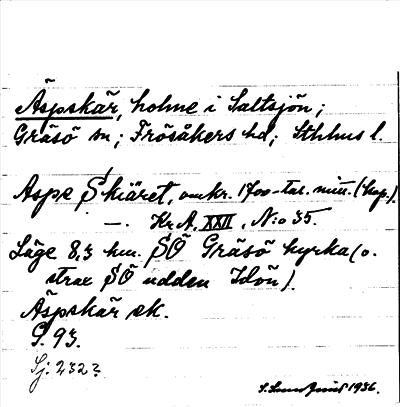 Äspskär, holme i Saltsjön;
Gräsö sn; Frösåkers hd; Sthlms l.
Aspe Skiäret, omkr. 1700-tal. mitt. (kop.).
—. Kr.A. XXII, N:o 35.
Läge 8,3 km. SÖ Gräsö kyrka (o.
strax SÖ udden Idön).
Äspskär ek.
G. 93.
Sj. 2323
1936.